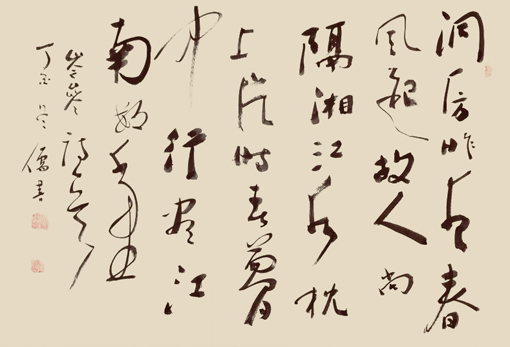 洞房昨夜春
风起故人尚
隔湘江水枕
上片时春梦
中行尽江
南数千里
岑参诗
丁酉 儒书